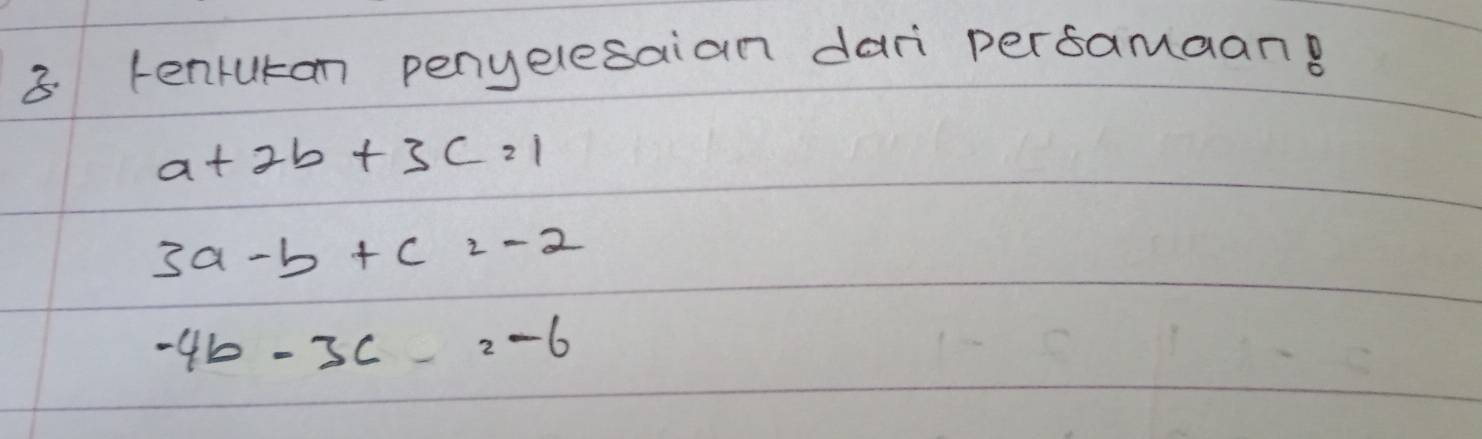 3. tentukan penyelesaian dari persamaan!
a + 2b + 3c = 1
3a - b + c = -2
-4b - 3c = -6